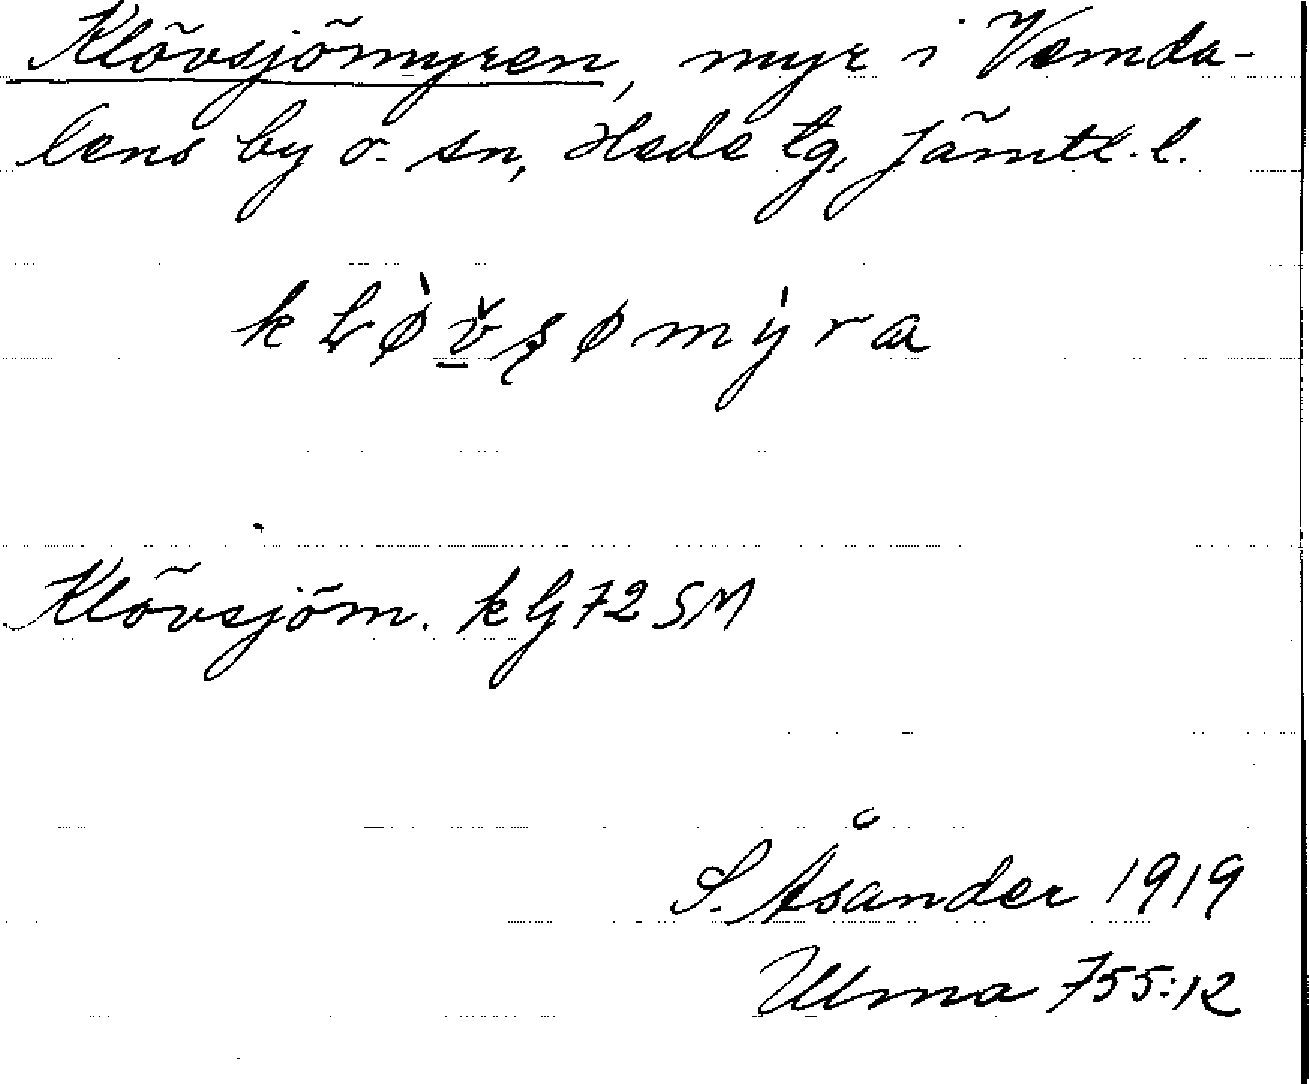 Klövsjömyren, myr i Vemda-
lens by o. sn, Hede tg, Jämtl. l.
kƚø̀v̌şømỳra
Klövsjöm. kG72SM
S. Åsander 1919
Ulma 755:12